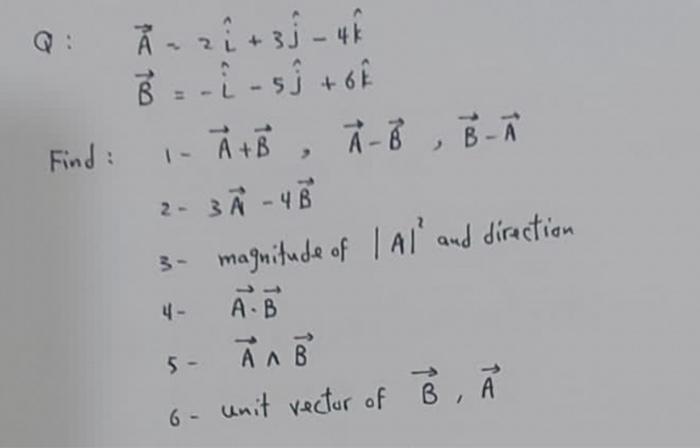 Q : A⃗ = 2 î + 3 ĵ - 4 k̂
B⃗ = - î - 5 ĵ + 6 k̂
Find : 1 - A⃗ + B⃗ , A⃗ - B⃗ , B⃗ - A⃗
2 - 3 A⃗ - 4 B⃗
3 - magnitude of |A|² and direction
4 - A⃗ . B⃗
5 - A⃗ ∧ B⃗
6 - unit vector of B⃗ , A⃗